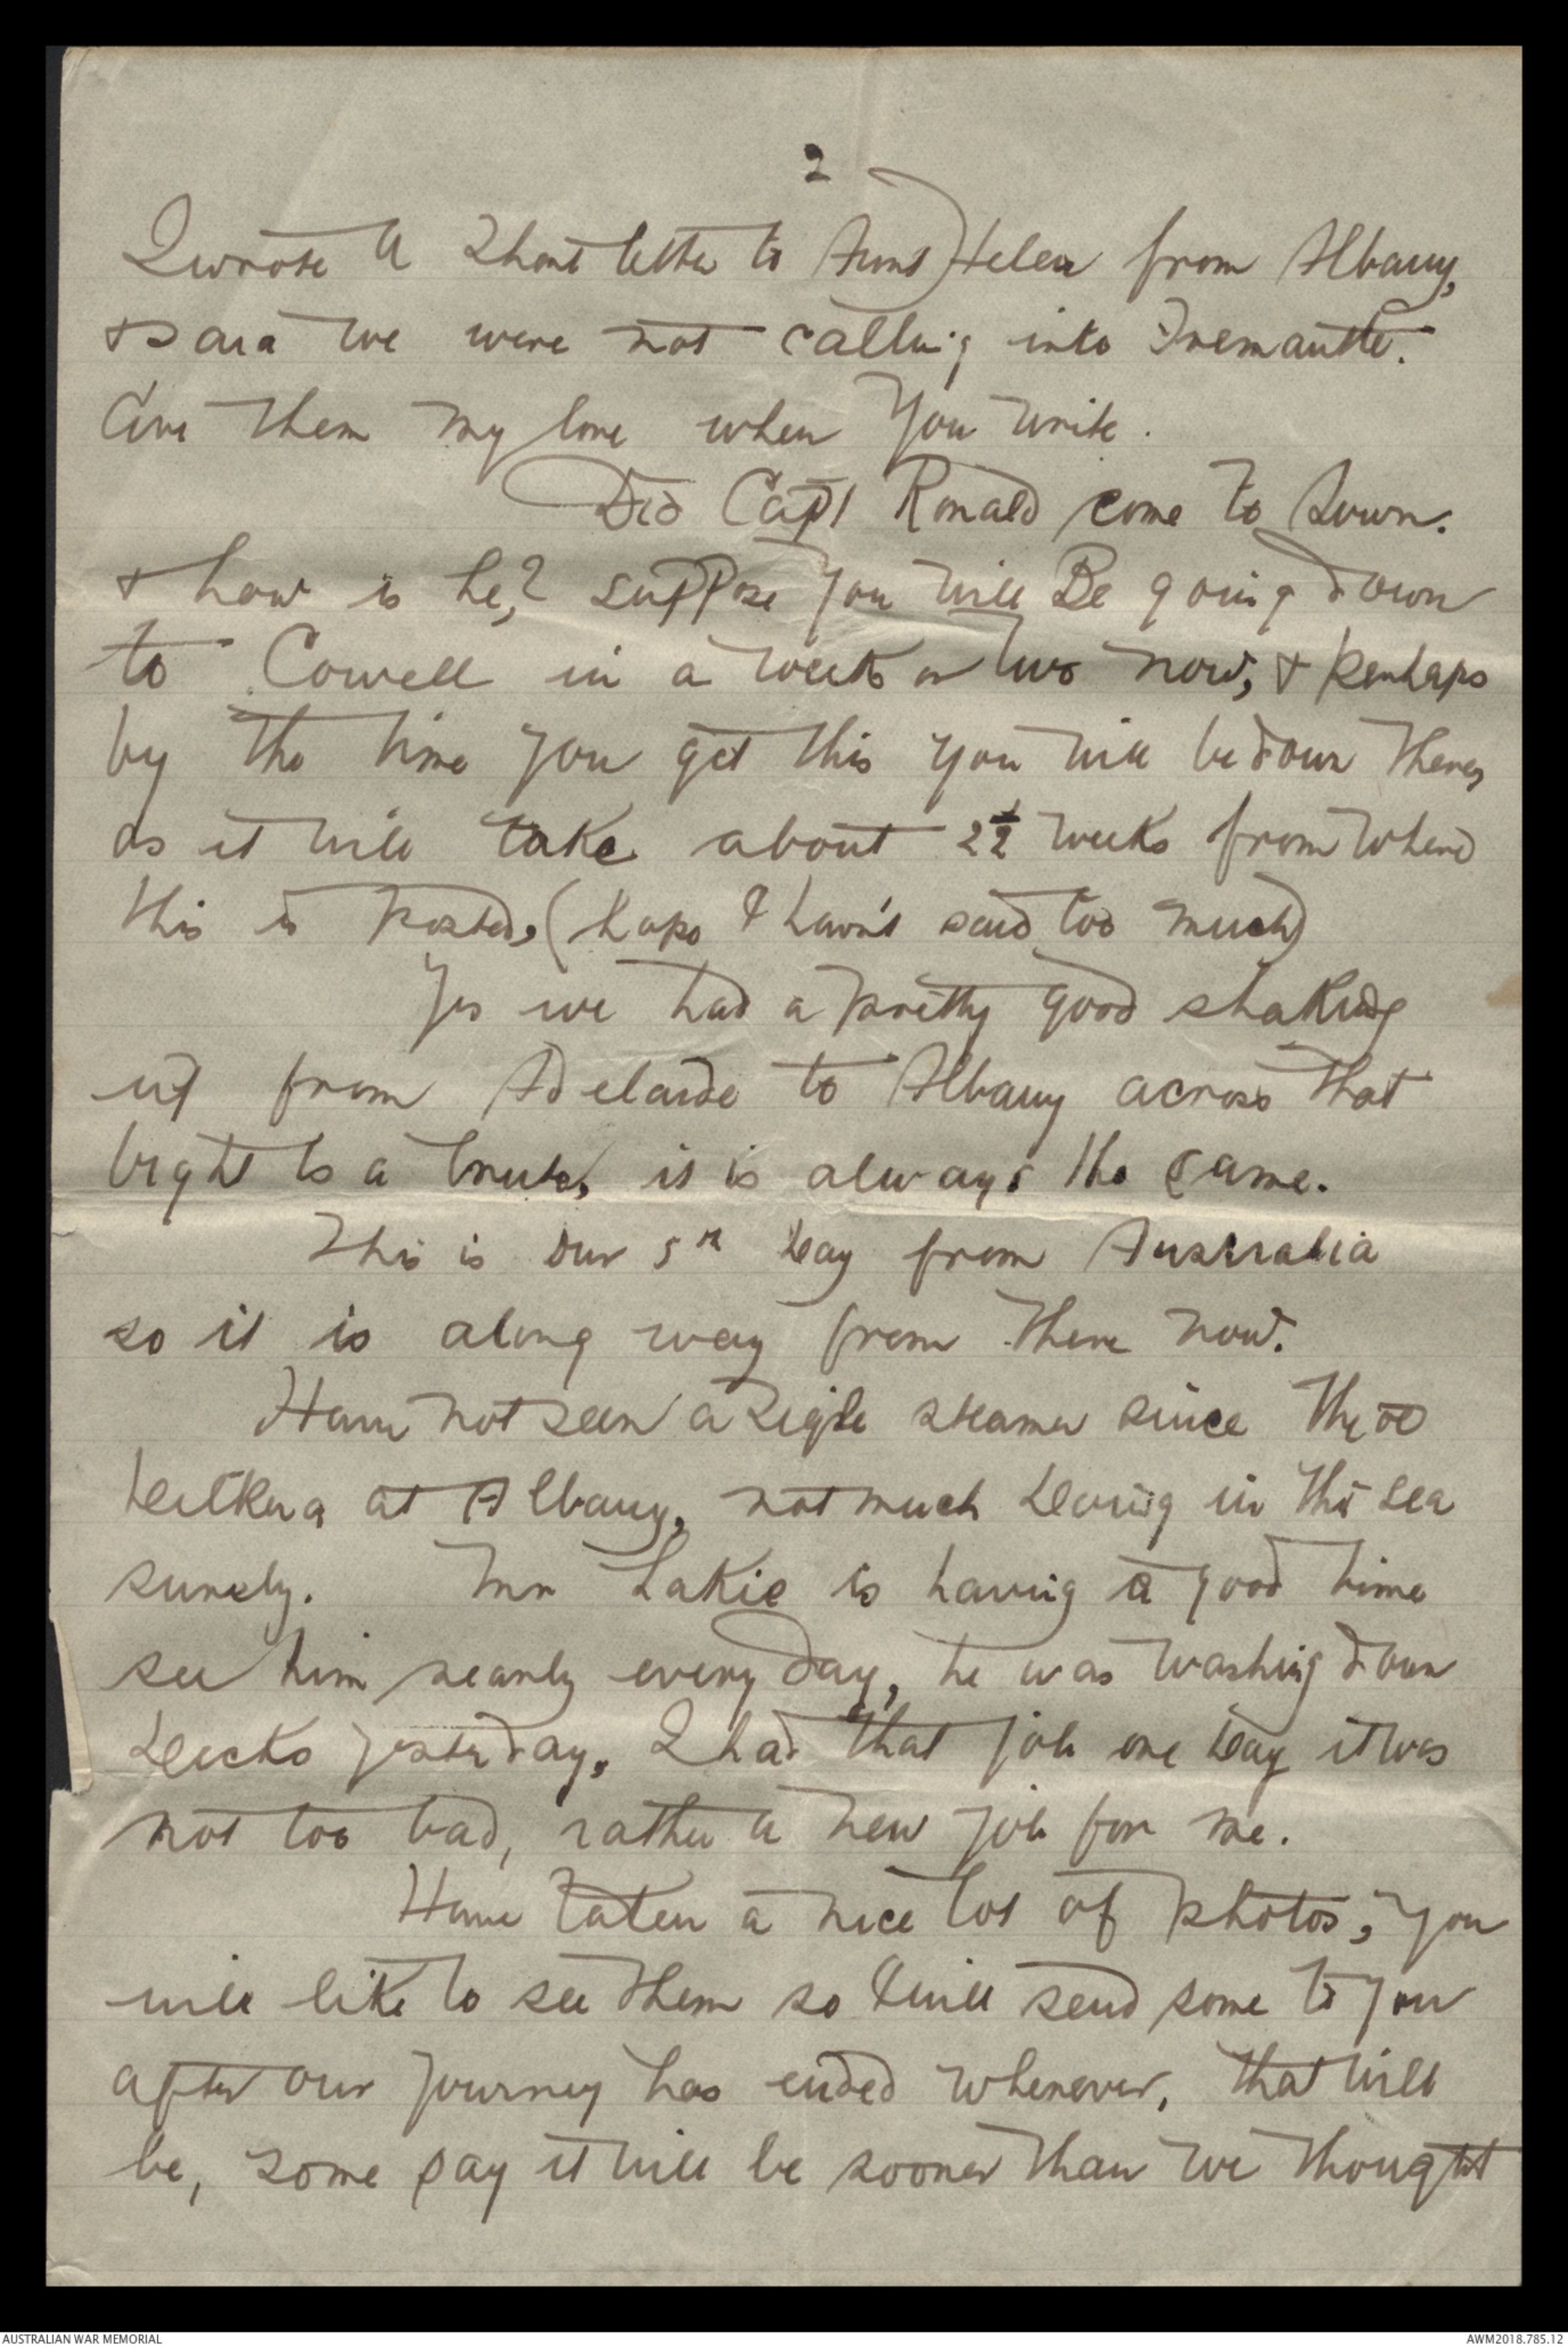 2
I wrote a short letter to Aunt Helen from Albany,
& said we were not calling into Fremantle.
Give them my love when you write.
Did Capt Ronald come to town.
& how is he,? suppose you will Be going down
to Cowell in a week or two now, & perhaps
by the time you get this you will be down there,
as it will take about 2½ weeks from where
this is posted, (hope I havn't said too much)
Yes we had a pretty good shaking
up from Adelaide to Albany across that
bight is a brute, it is always the same.
This is our 5th day from Australia
so it is along way from there now.
Have not seen a sigle steamer since the
at Albany, not much doing in this sea
surely. Mr Lakie is having a good time
see him nearly every day, he was washing down
decks yesterday, I had that job one day it was
not too bad, rather a new job for me.
Have taken a nice lot of photos, you
will like to see them so I will send some to you
after our journey has ended whenever, that will
be, some say it will be sooner than we thought
AUSTRALIAN WAR MEMORIAL
AWM2018.785.12